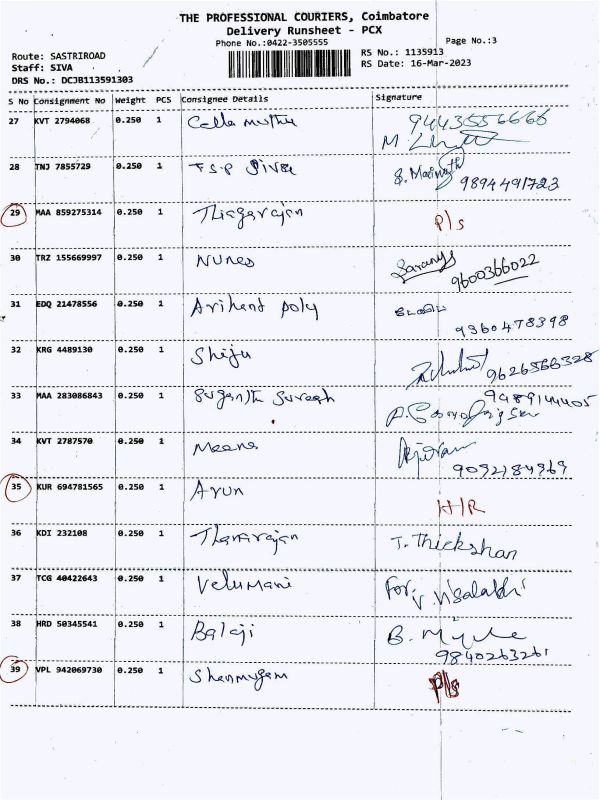 THE PROFESSIONAL COURIERS, Coimbatore
Delivery Runsheet - PCX
Phone No.:0422-3505555
Page No.:3
Route: SASTRIROAD
Staff: SIVA
DRS No.: DCJB113591303
RS No.: 1135913
RS Date: 16-Mar-2023
S No Consignment No Weight PCS Consignee Details Signature
27 KVT 2794068 0.250 1
9443556666
28 TNJ 7855729 0.250 1 FSP Siva
9894491723
29 MAA 859275314 0.250 1 Thiagarajan P/s
30 TRZ 155669997 0.250 1 Nunes Saranya
9600366022
31 EDQ 21478556 0.250 1 Arihant poly
9360478398
32 KRG 4489130 0.250 1 Shiju
9626566328
33 MAA 283086843 0.250 1 Suganth Suresh
9489144405
34 KVT 2787570 0.250 1 Meena
9092184969
35 KUR 694781565 0.250 1 Arun H/R
36 KDI 232108 0.250 1 T. Thickshan
37 TCG 40422643 0.250 1 Velumani For, V. Visalakhi
38 HRD 50345541 0.250 1 Balaji B.
9840263261
39 VPL 942069730 0.250 1 Shanmugam P/s